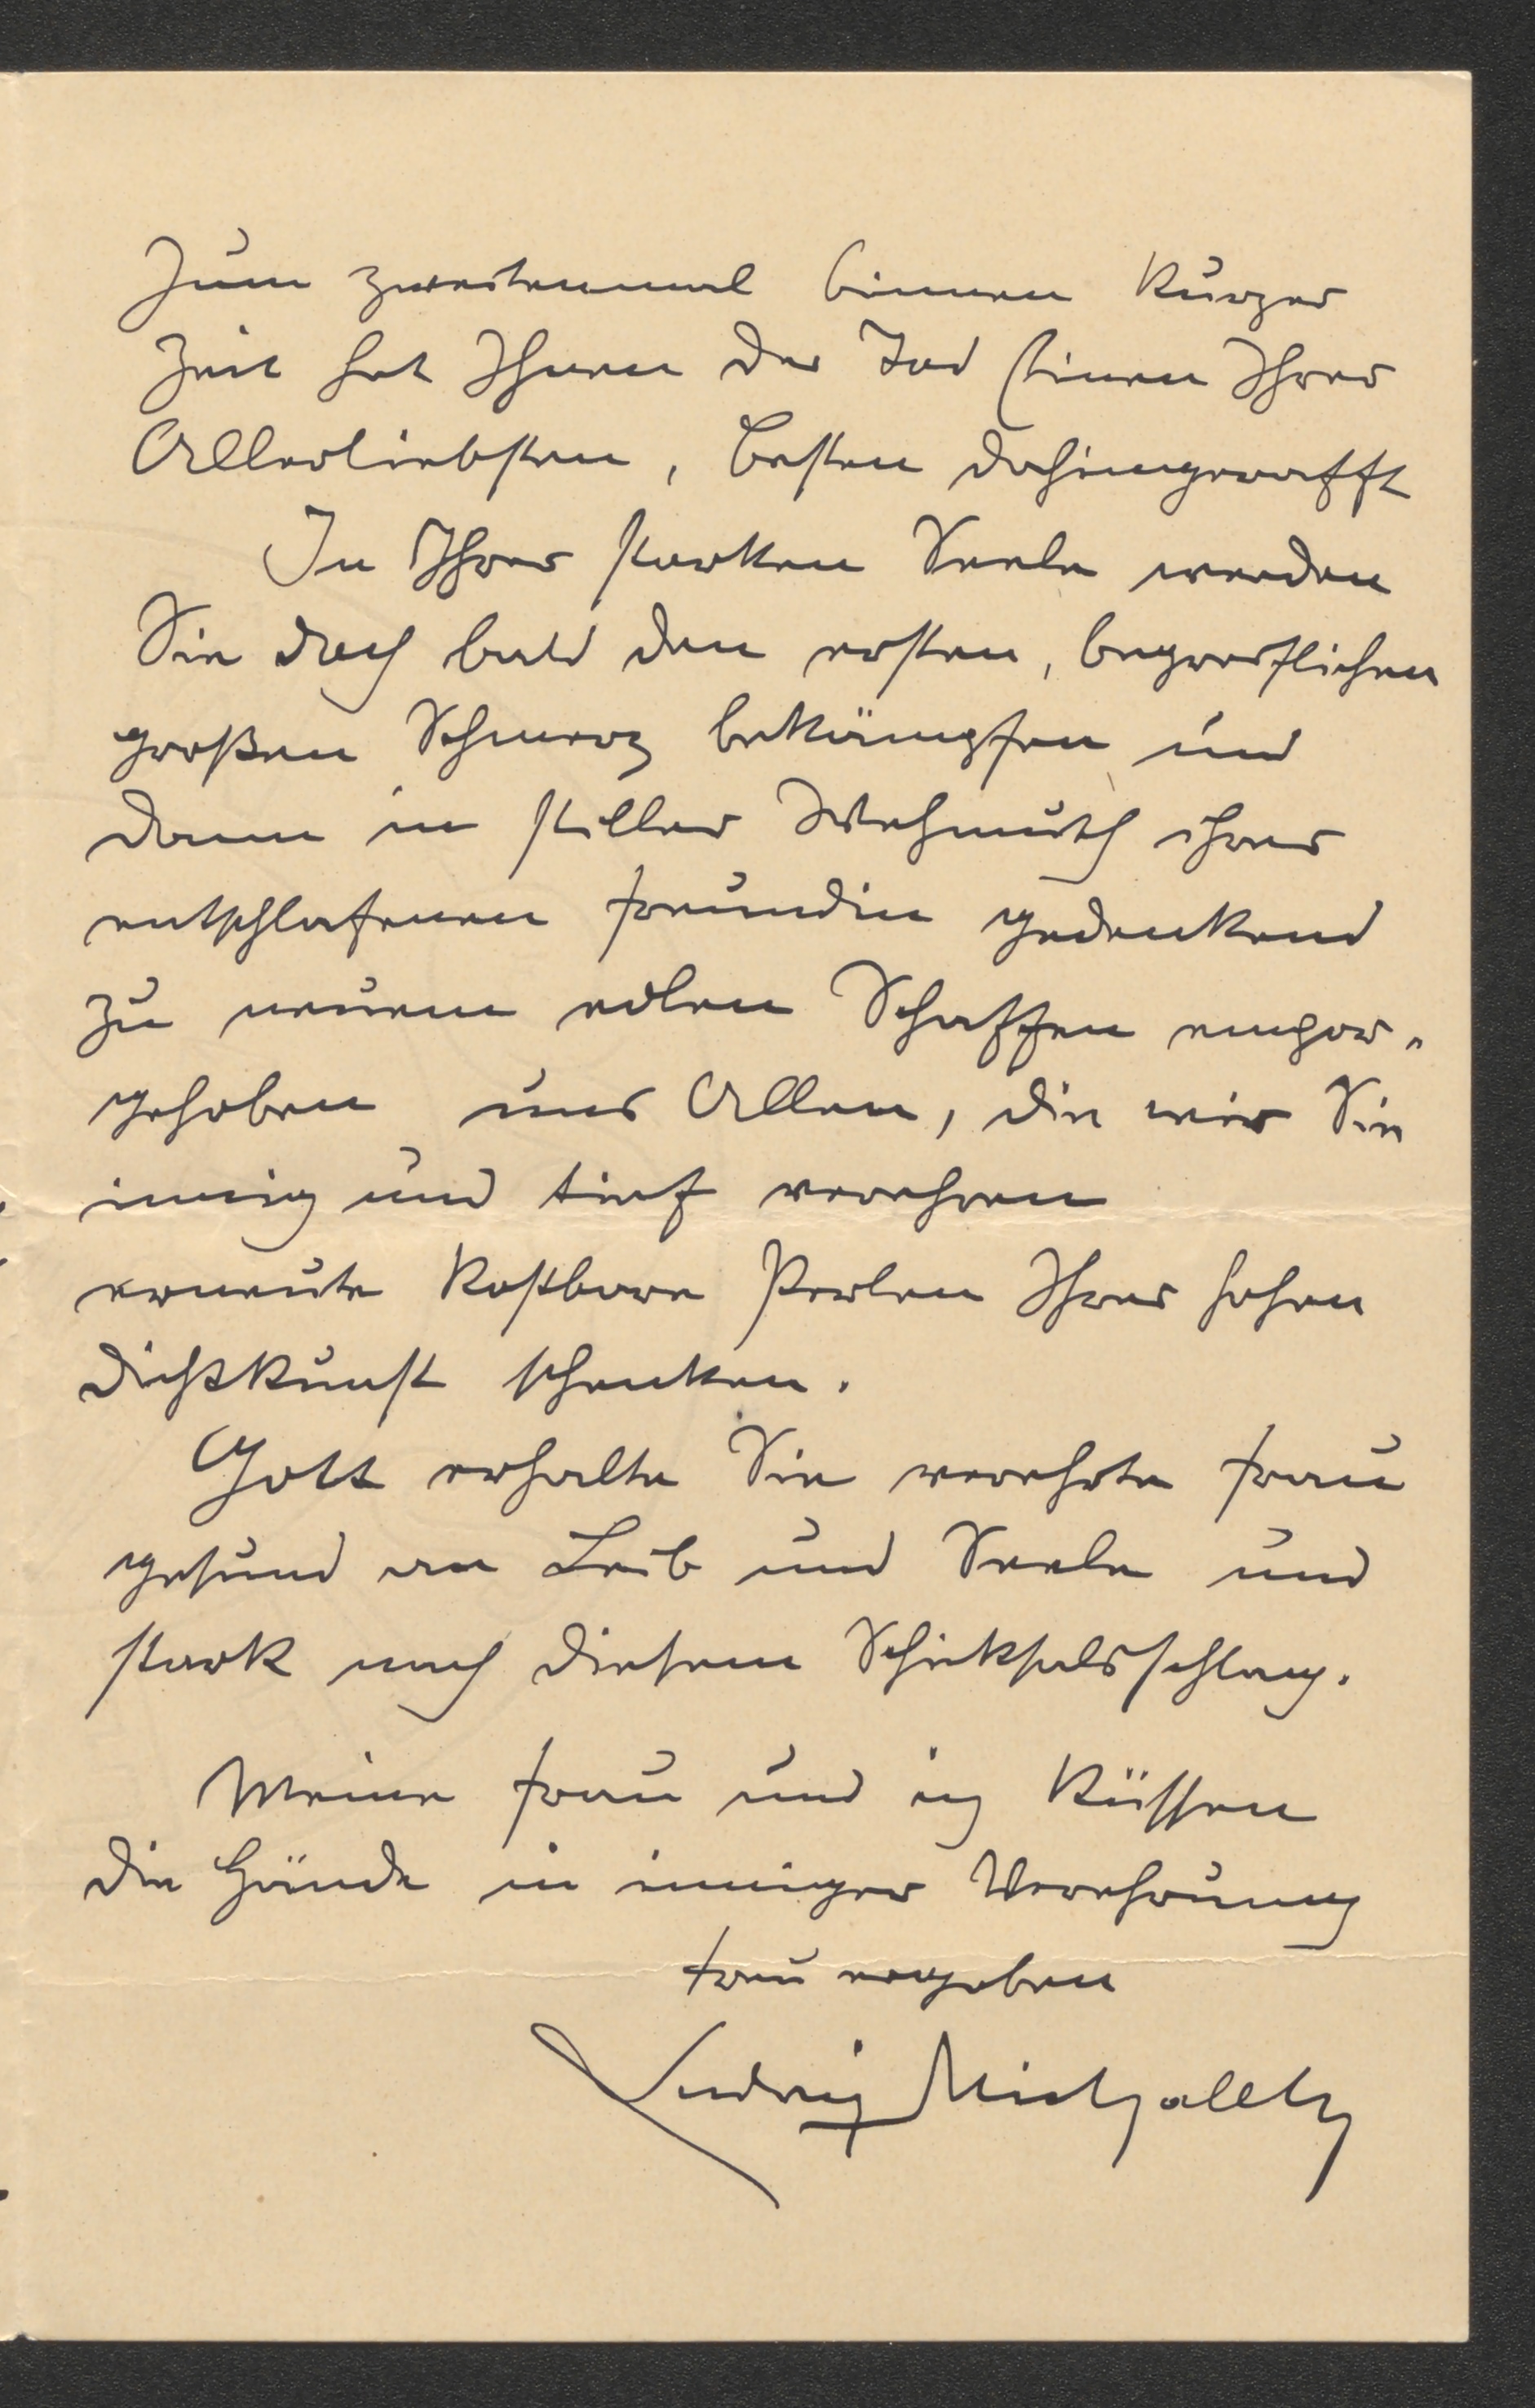 Zum zweitenmal binnen kurzer
Zeit hat Ihnen der Tod Einen Ihrer
Allerliebsten, besten dahingerafft
In Ihrer starken Seele werden
Sie doch bald den ersten, begreiflichen
großen Schmerz bekämpfen und
dann in stiller Wehmuth ihrer
entschlafenen Freundin gedenkend
zu neuem edlen Schaffen empor-
gehoben uns Allen, die wir Sie
innig und tief verehren
erneute kostbare Perlen Ihrer hohen
Dichtkunst schenken.
Gott erhalte Sie verehrte Frau
gesund an Leib und Seele und
stark nach diesem Schicksalsschlag.
Meine Frau und ich küssen
die Hände in inniger Verehrung
treu ergeben
Ludwig Michalek